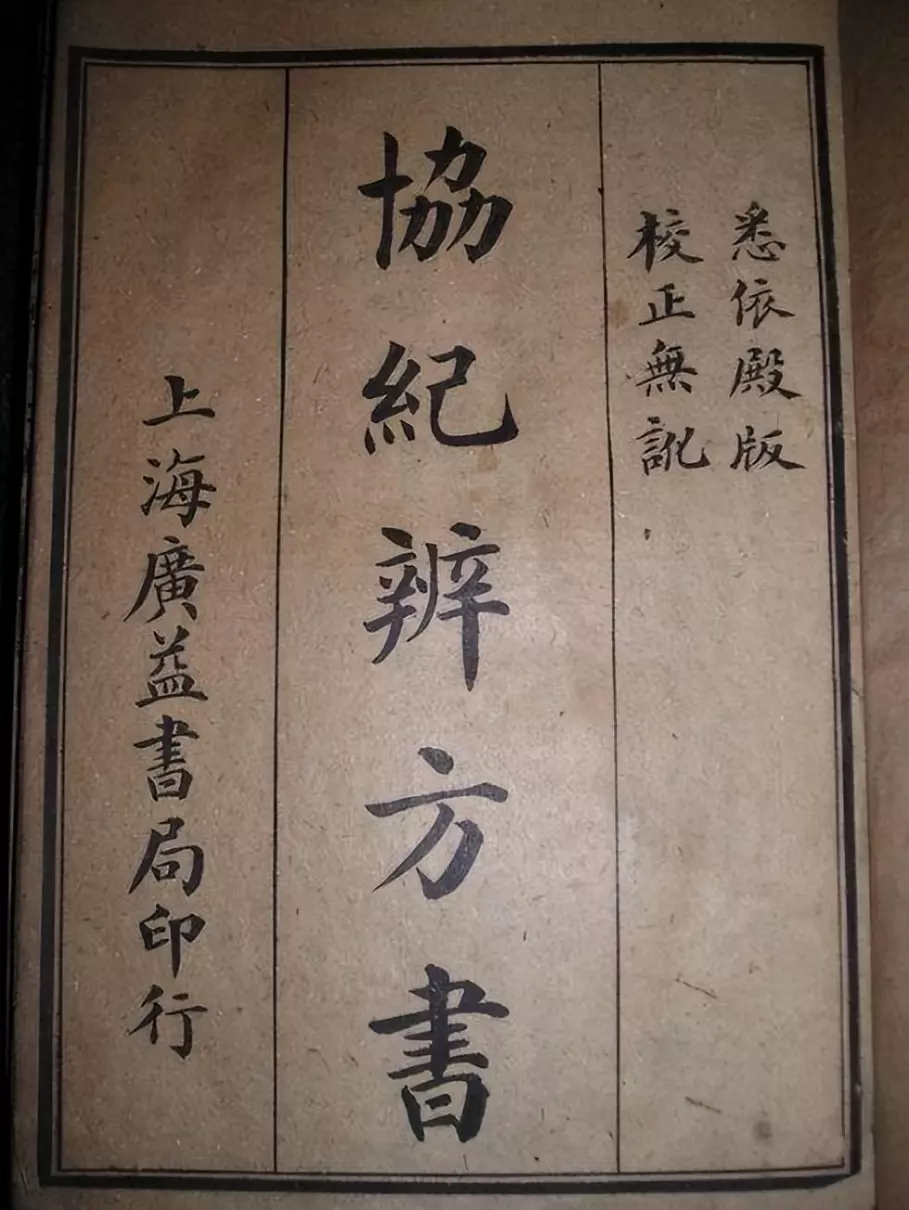 悉依殿版
校正無訛
協紀辨方書
上海廣益書局印行